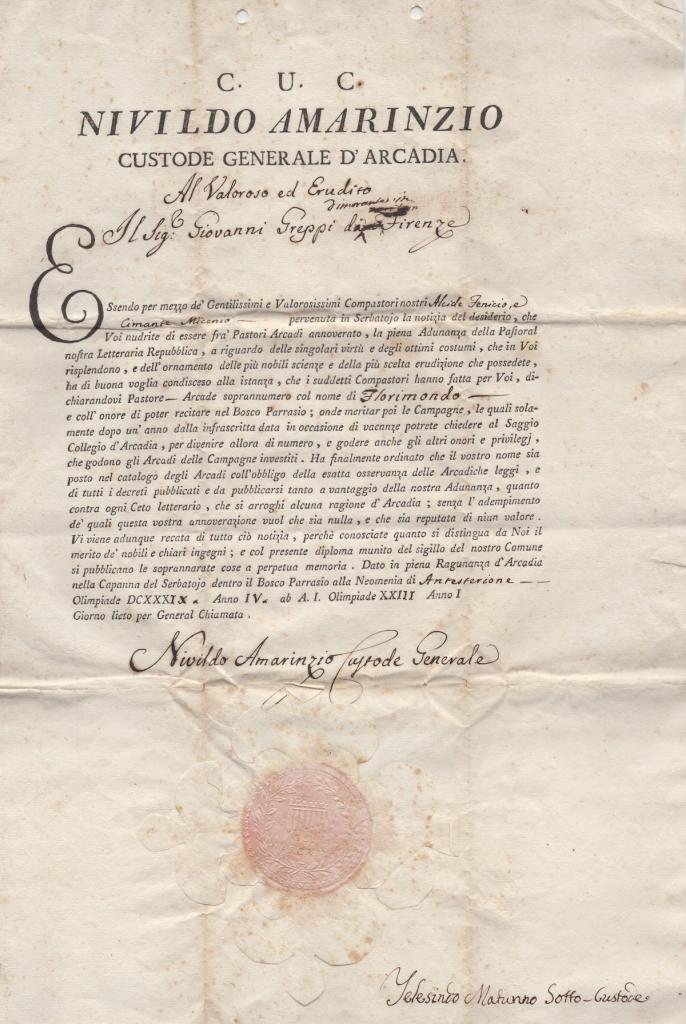 C. U. C.
NIVILDO AMARINZIO
CUSTODE GENERALE D'ARCADIA.
Al Valoroso ed Erudito
dimorante in
Il Sig.e Giovanni Greppi Firenze
ESsendo per mezzo de' Gentilissimi e Valorosissimi Compastori nostri Alcide Fenicio, e
Cimante Micenio — pervenuta in Serbatojo la notizia del desiderio, che
Voi nudrite di essere fra' Pastori Arcadi annoverato, la piena Adunanza della Pastoral
nostra Letteraria Repubblica, a riguardo delle singolari virtù e degli ottimi costumi, che in Voi
risplendono, e dell'ornamento delle più nobili scienze e della più scelta erudizione che possedete,
ha di buona voglia condisceso alla istanza, che i suddetti Compastori hanno fatta per Voi, di-
chiarandovi Pastore — Arcade soprannumero col nome di Florimondo —
e coll' onore di poter recitare nel Bosco Parrasio; onde meritar poi le Campagne, le quali sola-
mente dopo un' anno dalla infrascritta data in occasione di vacanze potrete chiedere al Saggio
Collegio d'Arcadia, per divenire allora di numero, e godere anche gli altri onori e privilegj,
che godono gli Arcadi delle Campagne investiti. Ha finalmente ordinato che il vostro nome sia
posto nel catalogo degli Arcadi coll'obbligo della esatta osservanza delle Arcadiche leggi, e
di tutti i decreti pubblicati e da pubblicarsi tanto a vantaggio della nostra Adunanza, quanto
contra ogni Ceto letterario, che si arroghi alcuna ragione d'Arcadia; senza l'adempimento
de' quali questa vostra annoverazione vuol che sia nulla, e che sia reputata di niun valore.
Vi viene adunque recata di tutto ciò notizia, perchè conosciate quanto si distingua da Noi il
merito de' nobili e chiari ingegni; e col presente diploma munito del sigillo del nostro Comune
si pubblicano le soprannarate cose a perpetua memoria. Dato in piena Ragunanza d'Arcadia
nella Capanna del Serbatojo dentro il Bosco Parrasio alla Neomenia di Antesterione — —
Olimpiade DCXXXIX. Anno IV. ab A. I. Olimpiade XXIII Anno I
Giorno lieto per General Chiamata.
Nivildo Amarinzio Custode Generale
Sotto-Custode